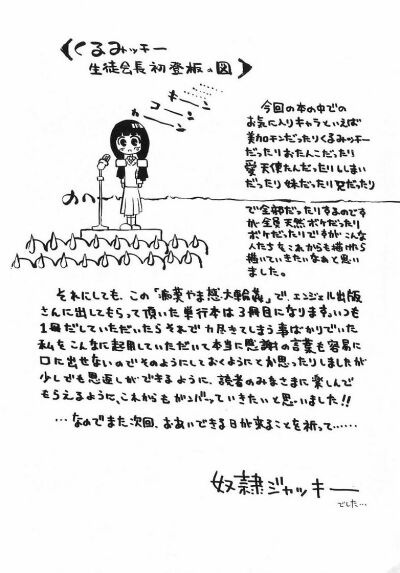 《くるみッキー
生徒会長初登板の図》
キーーン
コーーン
カーーン
今回の本の中での
お気に入りキャラといえば
美加チンだったりくるみッキー
だったりおたんこだったり
愛天使たんだったりししまい
だったり妹だったり兄だったり
で全部だったりするのです
が全員天然ボケだったり
ボケだったりですがこんな
人たちをこれからも描けたら
描いていきたいなぁと思い
ました。
それにしても、この「
やま感大輪姦」で、エンジェル出版
さんに出してもらって頂いた単行本は3冊目になります。いつも
1冊だしていただいたらそれで力尽きてしまう事ばかりでいた
私をこんなに起用していただいて本当に感謝の言葉も容易に
口に出せないのでそのようにしておくようにとか思ったりしましたが
少しでも恩返しができるように、読者のみなさまに楽しんで
もらえるように、これからもガンバッていきたいと思いました!!
…なのでまた次回、おあいできる日が来ることを祈って……
奴隷ジャッキー
でした…